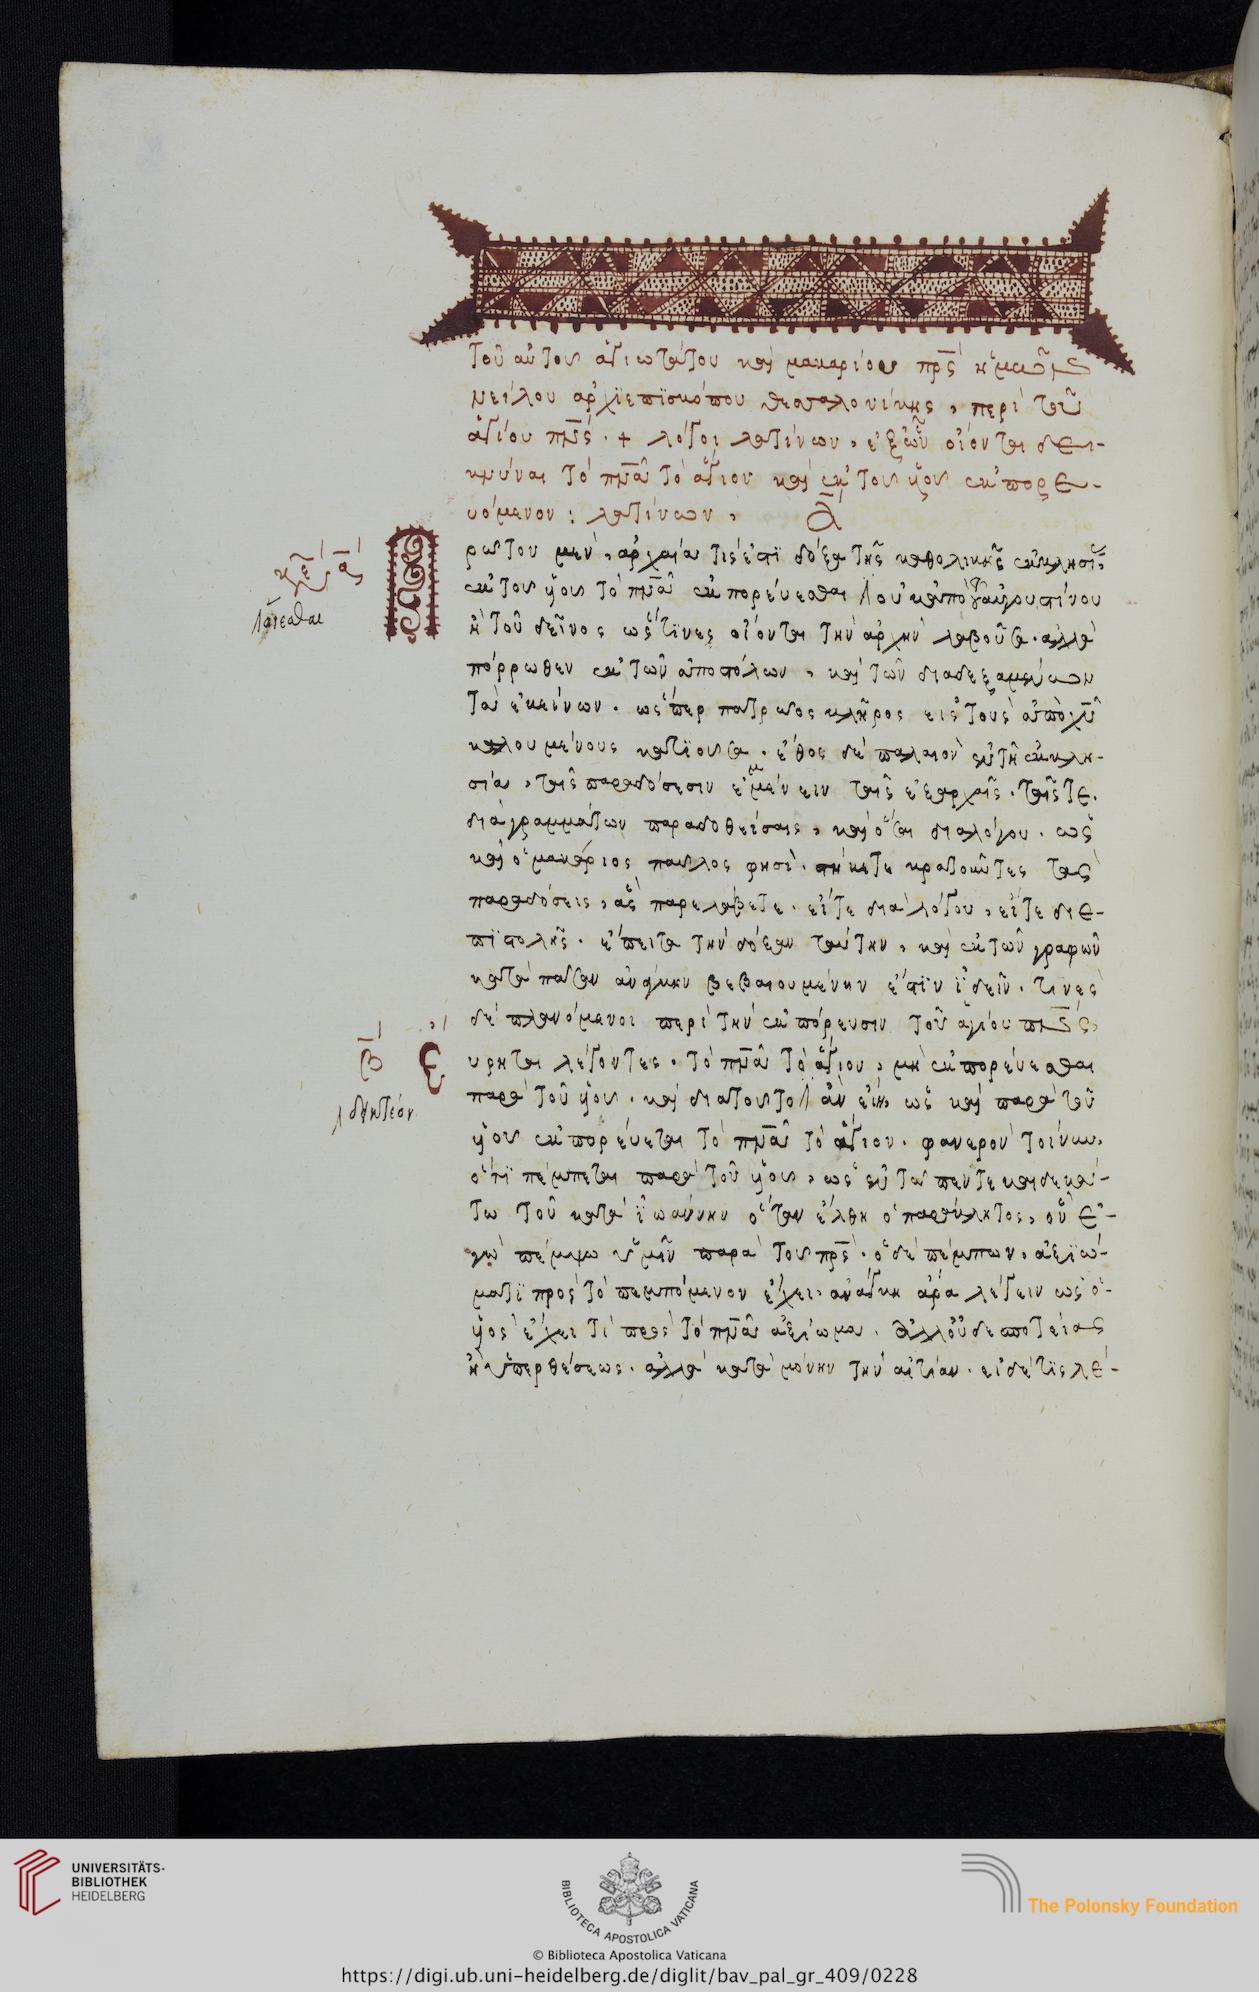 τοῦ αὐτοῦ ἁγιωτάτου καὶ μακαρίου πρς ἡμῶν
νείλου ἀρχιεπισκόπου θεσσαλονίκης, περὶ τοῦ
ἁγίου πνς. + λόγοι λατίνων, ἐξ ὧν οἴονται δει-
κνύναι τὸ πνα τὸ ἅγιον καὶ ἐκ τοῦ υἱοῦ ἐκπορε-
υόμενον: λατίνων,
κεφ α
Πρῶτον μὲν, ἀρχαία τίς ἐστι δόξα τῆς καθολικῆς ἐκκλησίας
λέγεσθαι
ἐκ τοῦ υἱοῦ τὸ πνα ἐκπορεύεσθαι οὐκ ἀπὸ τοῦ αὐγουστίνου
ἢ τοῦ δεῖνος ὥς τινες οἴονται τὴν ἀρχὴν λαβοῦσα. ἀλλὰ
πόρρωθεν ἐκ τῶν ἀποστόλων, καὶ τῶν διαδεξαμένων
τὰ ἐκείνων. ὥσπερ πατρῶος κλῆρος εἰς τοὺς ἀπὸ χυ
καλουμένους κατιοῦσα. ἔθος δὲ παλαιὸν ἐν τῇ ἐκκλη-
σία, ταῖς παραδόσεσιν ἐμμένειν ταῖς ἐξαρχῆς. ταῖς τε
διὰ γραμμάτων παραδοθείσαις, καὶ ὅσαι διαλόγου. ὡς
καὶ ὁ μακάριος παῦλος φησὶ. στήκετε κρατοῦντες τὰς
παραδόσεις, ἃς παρελάβετε. εἴτε διὰ λόγου, εἴτε δι ε-
πιστολῆς. ἔπειτα τὴν δόξαν ταύτην, καὶ ἐκ τῶν γραφῶν
κατὰ πᾶσαν ἀνάγκην βεβαιουμένην ἔστιν ἰδεῖν. τινὲς
δὲ πλανόμενοι περὶ τὴν ἐκπόρευσιν τοῦ ἁγίου πνς,
β
εὕρηνται λέγοντες. τὸ πνα τὸ ἅγιον, μὴ ἐκπορεύεσθαι
παρὰ τοῦ υἱοῦ. καὶ διὰ τοῦτο ἂν εἴη ὡς καὶ παρὰ τοῦ
υἱοῦ ἐκπορεύεται τὸ πνα τὸ ἅγιον. φανερὸν τοίνυν,
ὅτι πέμπεται παρὰ τοῦ υἱοῦ, ὡς ἐν τῷ πεντεκαιδεκά-
τω τοῦ κατὰ ἰωάννην ὅταν ἔλθη ὁ παράκλητος, ὃν ἐ-
γὼ πέμψω ὑμῖν παρὰ τοῦ πρς. ὁ δὲ πέμπων, ἀξίω-
μά τι πρὸς τὸ πεμπόμενον ἔχει, ἀνάγκη ἄρα λέγειν ὡς ὁ
υἱὸς ἔχει τὶ πρὸς τὸ πνα ἀξίωμα. ἀλλ οὐ δεσποτείας
ἢ ὑπερθέσεως. ἀλλὰ κατὰ μόνην τὴν αἰτίαν. εἰ δέ τις λέ-